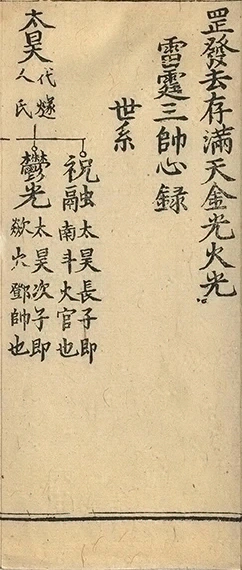 罡發去存滿天金光火光
雷霆三帥心録
世系
祝融太昊長子即
南斗火官也
太昊代燧
人民
鬱光太昊次子即
歘火鄧帥也